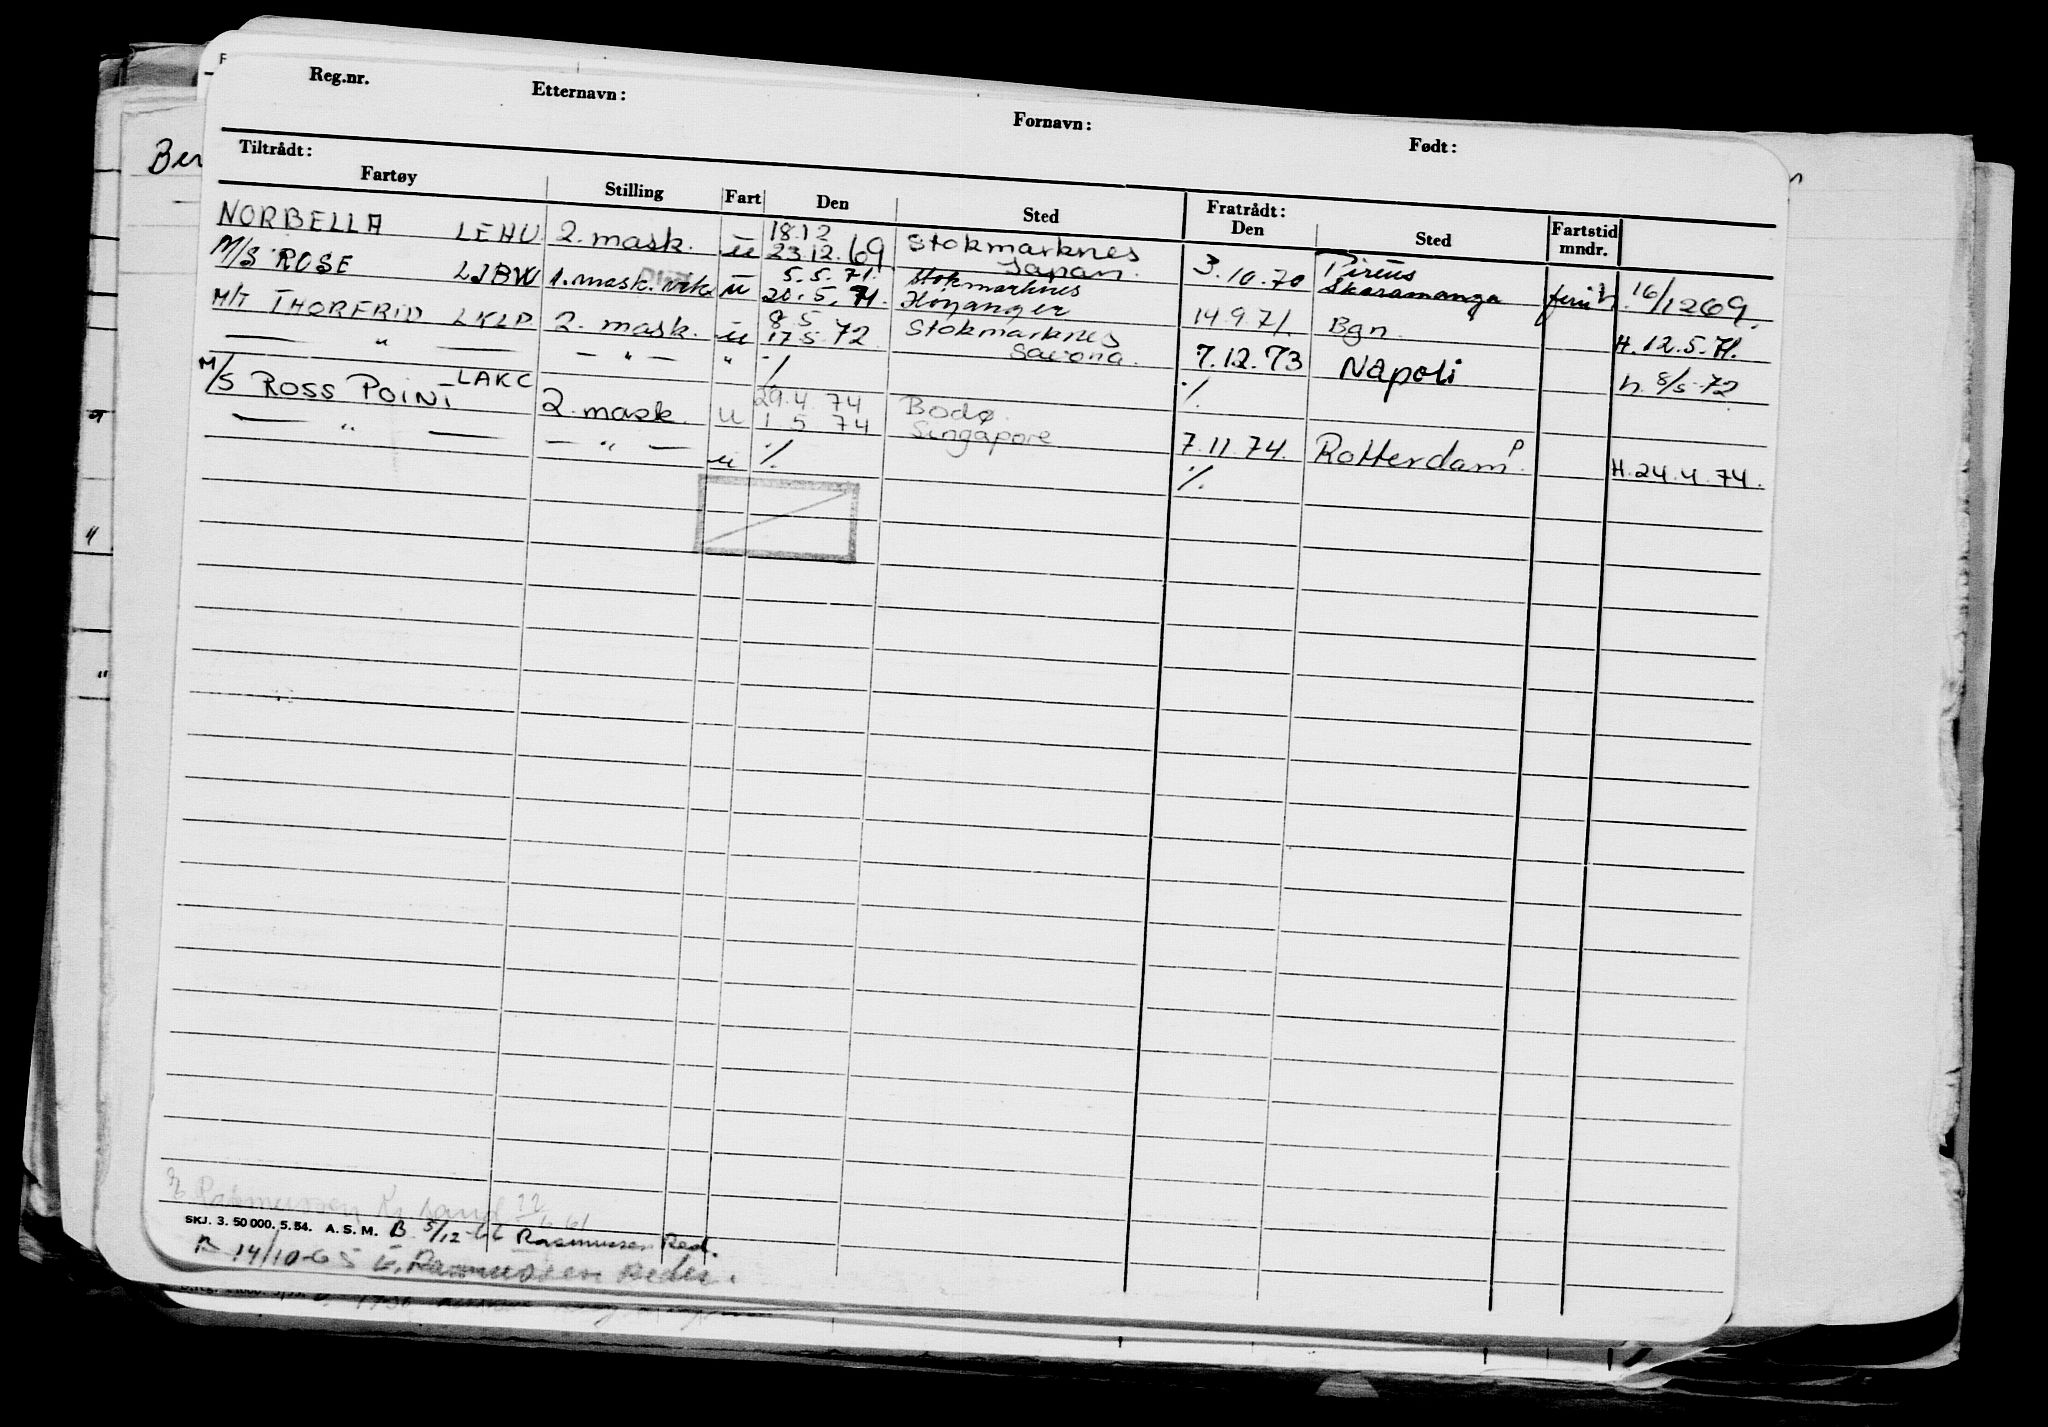 Reg.nr. Etternavn: Fornavn: Født:
Tiltrådt: Fratrådt:
Fartøy Stilling Fart Den Sted Den Sted Fartstid mndr.
Ber
NORBELLA LEHU 2. mask. u 18.12 Stokmarknes
23.12.69 Japan. 3.10.70 Pireus Skaramanga h. 16/12 69.
M/S ROSE LJBW 1. mask. vik u 5.5.71. Stokmarknes
20.5.71. Høyanger 14.9.71. Bgn. H. 12.5.71.
M/T THORFRID LKLP 2. mask. u 8.5 Stokmarknes
17.5.72. Savona. 7.12.73 Napoli h. 8/5-72
— " — — " — " ./. ./.
M/S ROSS POINT LAKC 2. mask. u 29.4.74 Bodø.
1.5.74 Singapore 7.11.74. Rotterdam P. H. 24.4.74.
— " — — " — u ./. ./.
Rasmussen Kr.sand
SKJ. 3. 50 000. 5. 54. A. S. M. B. 5/12-66 Rasmussen Red.
B 14/10-65 v. Rasmussen Rederi.